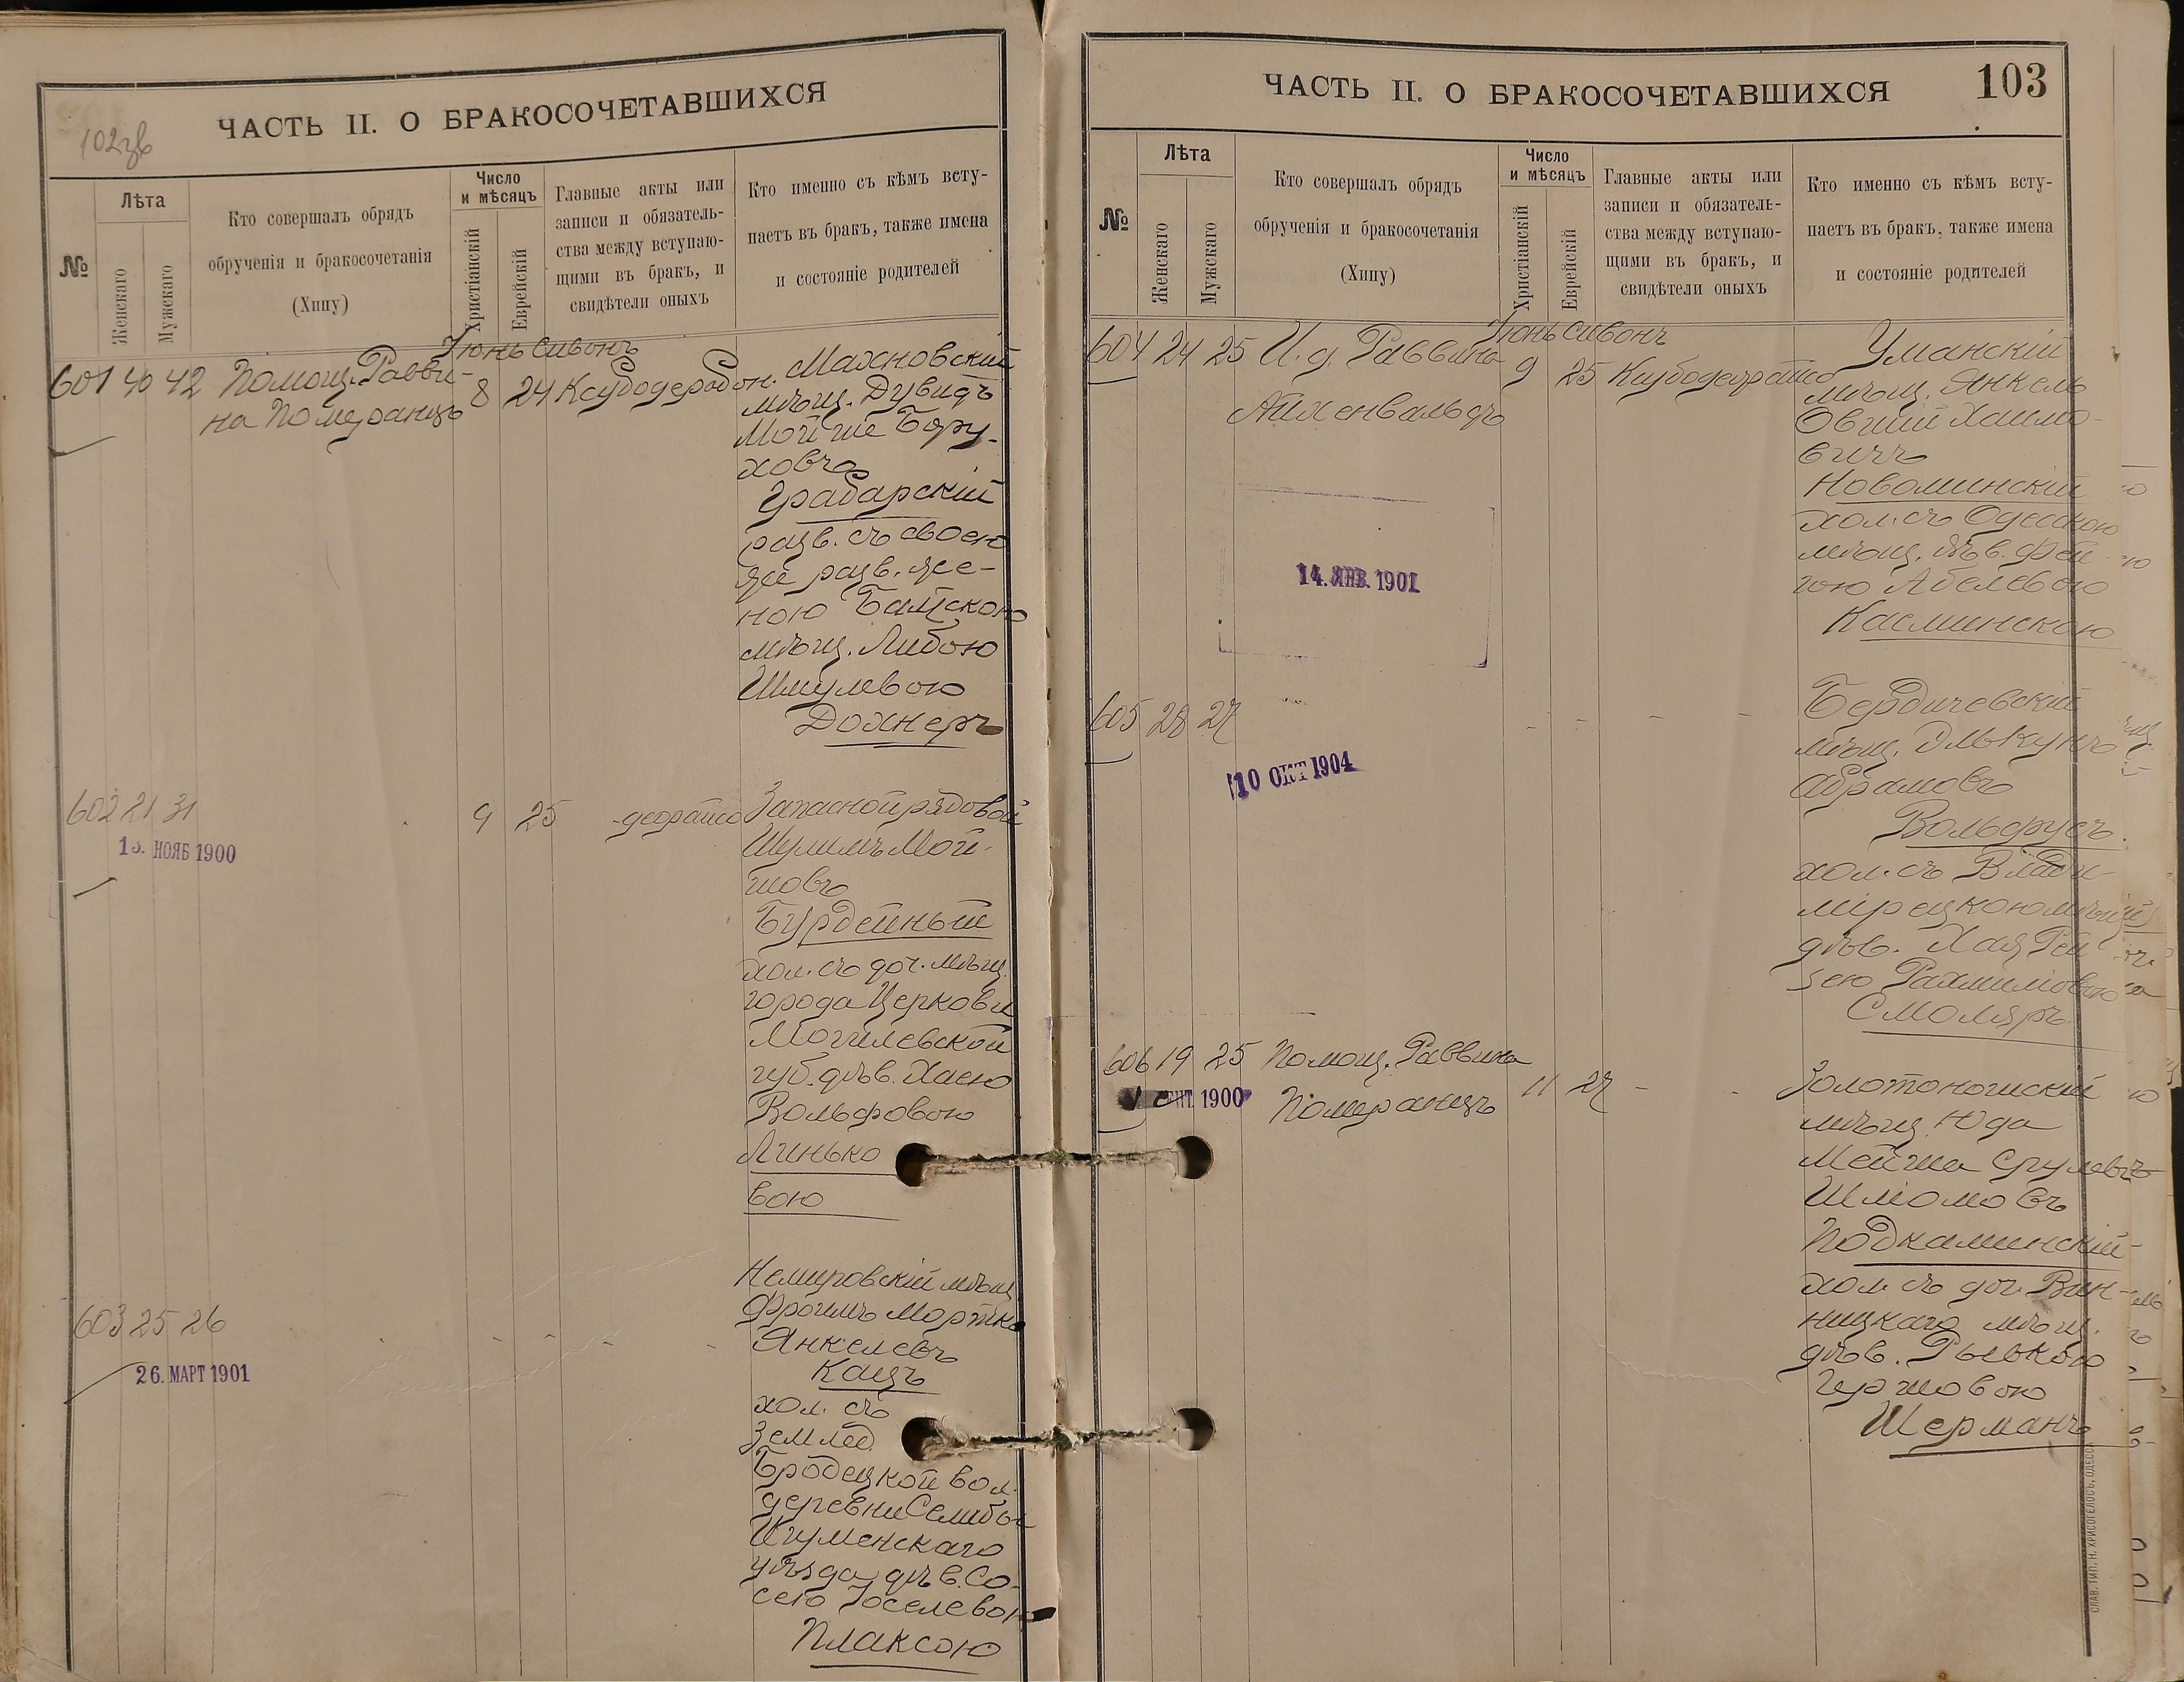 ЧАСТЬ II. О БРАКОСОЧЕТАВШИХСЯ
№
Лѣта
Женскаго
Мужскаго
Кто совершалъ обрядъ
обрученія и бракосочетанія
(Хипу)
Число
и мѣсяцъ
Христіанскій
Еврейскій
Главные акты или
записи и обязатель-
ства между вступаю-
щими въ бракъ, и
свидѣтели оныхъ
Кто именно съ кѣмъ всту-
паетъ въ бракъ, также имена
и состояніе родителей
Іюнь Сивонъ
601 40 42 Помощ. Равви-
на Померанцъ
8 24
Махновскій
мѣщ. Дувидъ
Мойше Бору-
ховъ
Грабарскій
разв. съ своею
же разв. же-
ною Балтскою
мѣщ. Либою
Шмулевою
Дохнеръ
602 21 31
13. НОЯБ 1900
9 25
Запасной рядовой
Шулимъ Мой-
шовъ
Бурдейный
хол. съ доч. мѣщ.
города Церковы
Могилевской
губ. дѣв. Хаею
Вольфовою
Линько
вою
603 25 26
26. МАРТ 1901
Немировскій мѣщ.
Фроимъ Мортко
Янкелевъ
Кацъ
хол. съ
Землед.
Бродецкой вол.
деревни Селибы
Игуменскаго
уѣзда дѣв. Со-
сею Іоселевою
Плаксою
ЧАСТЬ II. О БРАКОСОЧЕТАВШИХСЯ
103
№
Лѣта
Женскаго
Мужскаго
Кто совершалъ обрядъ
обрученія и бракосочетанія
(Хипу)
Число
и мѣсяцъ
Христіанскій
Еврейскій
Главные акты или
записи и обязатель-
ства между вступаю-
щими въ бракъ, и
свидѣтели оныхъ
Кто именно съ кѣмъ всту-
паетъ въ бракъ, также имена
и состояніе родителей
Іюнь Сивонъ
604 24 25 И. д. Раввина
Айхенвальдъ
9 25
14. ЯНВ. 1901
Уманскій
мѣщ. Янкель
Овшій Хаимо-
вичъ
Новоминскій
хол. съ Одесскою
мѣщ. дѣв. Фей-
гою Абелевою
Касминскою
605 28 27
10 ОКТ 1904
Бердичевскій
мѣщ. Элькунъ
Абрамовъ
Вольфусъ
хол. съ Влади-
мірецкою мѣщ.
дѣв. Хая Рей-
зею Рахмиловою
Смоляръ
606 19 25 Помощ. Раввина
Померанцъ
СЕНТ. 1900
11 27
Золотоношскій
мѣщ. Юда
Мейша Срулевъ
Шліомовъ
Подкаминскій
хол. съ доч. Вин-
ницкаго мѣщ.
дѣв. Рывкою
Гершовою
Шерманъ
СЛАВ. ТИП. Н. ХРИСОГЕЛОСЪ, ОДЕССА